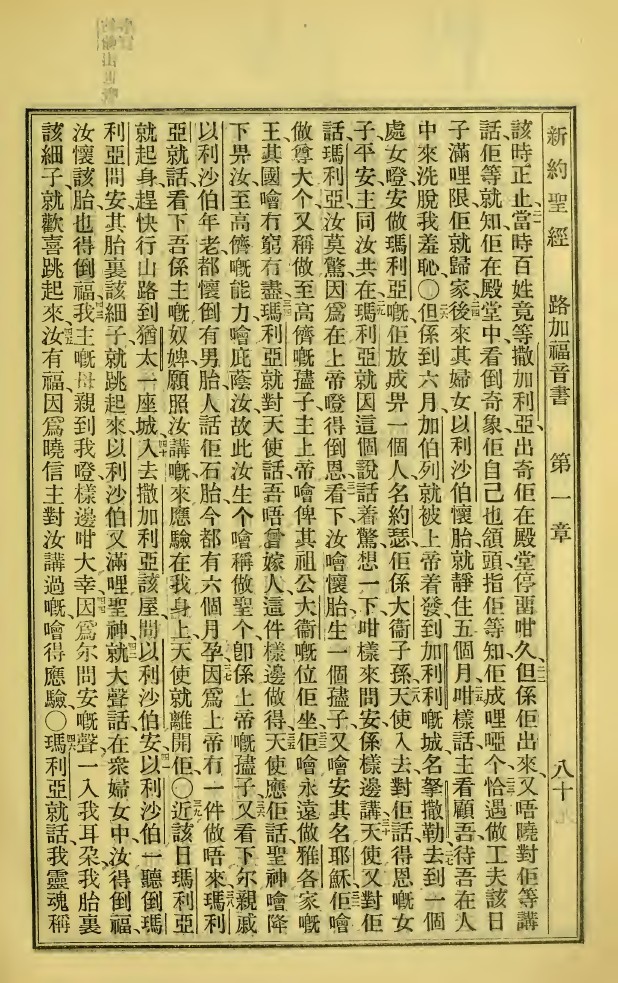 新約聖經 路加福音書 第一章 八十
該時正止、二一當時百姓竟等撒加利亞出奇佢在殿堂停畱咁久、二二但係佢出來、又唔曉對佢等講
話、佢等就知佢在殿堂中看倒奇象佢自己也頷頭指佢等知佢成哩啞个、二三恰遇做工夫該日
子滿哩限佢就歸家、二四後來其婦女以利沙伯懷胎就靜住五個月、二五咁樣話主看顧吾待吾在人
中來洗脫我羞恥〇二六但係到六月加伯列就被上帝着發到加利利嘅城名拏撒勒、二七去到一個
處女嗒安做瑪利亞嘅佢放成畀一個人名約瑟佢係大衞子孫、二八天使入去對佢話得恩嘅女
子平安主同汝共在、二九瑪利亞就因這個說話着驚想一下咁樣來問安係樣邊講、三十天使又對佢
話、瑪利亞汝莫驚因爲在上帝嗒得倒恩、三一看下汝噲懷胎生一個孻子又噲安其名耶穌、三二佢噲
做尊大个又稱做至高儕嘅孻子、主上帝噲俾其祖公大衞嘅位佢坐、三三佢噲永遠做雅各家嘅
王其國噲冇窮冇盡、三四瑪利亞就對天使話吾唔曾嫁人這件樣邊做得、三五天使應佢話聖神噲降
下畀汝至高儕嘅能力噲庇蔭汝故此汝生个噲稱做聖个卽係上帝嘅孻子、三六又看下尔親戚
以利沙伯年老都懷倒有男胎人話佢石胎今都有六個月孕、三七因爲上帝冇一件做唔來、三八瑪利
亞就話看下吾係主嘅奴婢願照汝講嘅來應驗在我身上、天使就離開佢〇三九近該日瑪利亞
就起身趕快行山路到猶太一座城、四十入去撒加利亞該屋問以利沙伯安、四一以利沙伯一聽倒瑪
利亞問安其胎裏該細子就跳起來以利沙伯又滿哩聖神、四二就大聲話在衆婦女中汝得倒福、
汝懷該胎也得倒福、四三我主嘅母親到我嗒樣邊咁大幸、四四因爲尔問安嘅聲一入我耳朶我胎裏
該細子就歡喜跳起來、四五汝有福因爲曉信主對汝講過嘅噲得應驗〇四六瑪利亞就話我靈魂稱